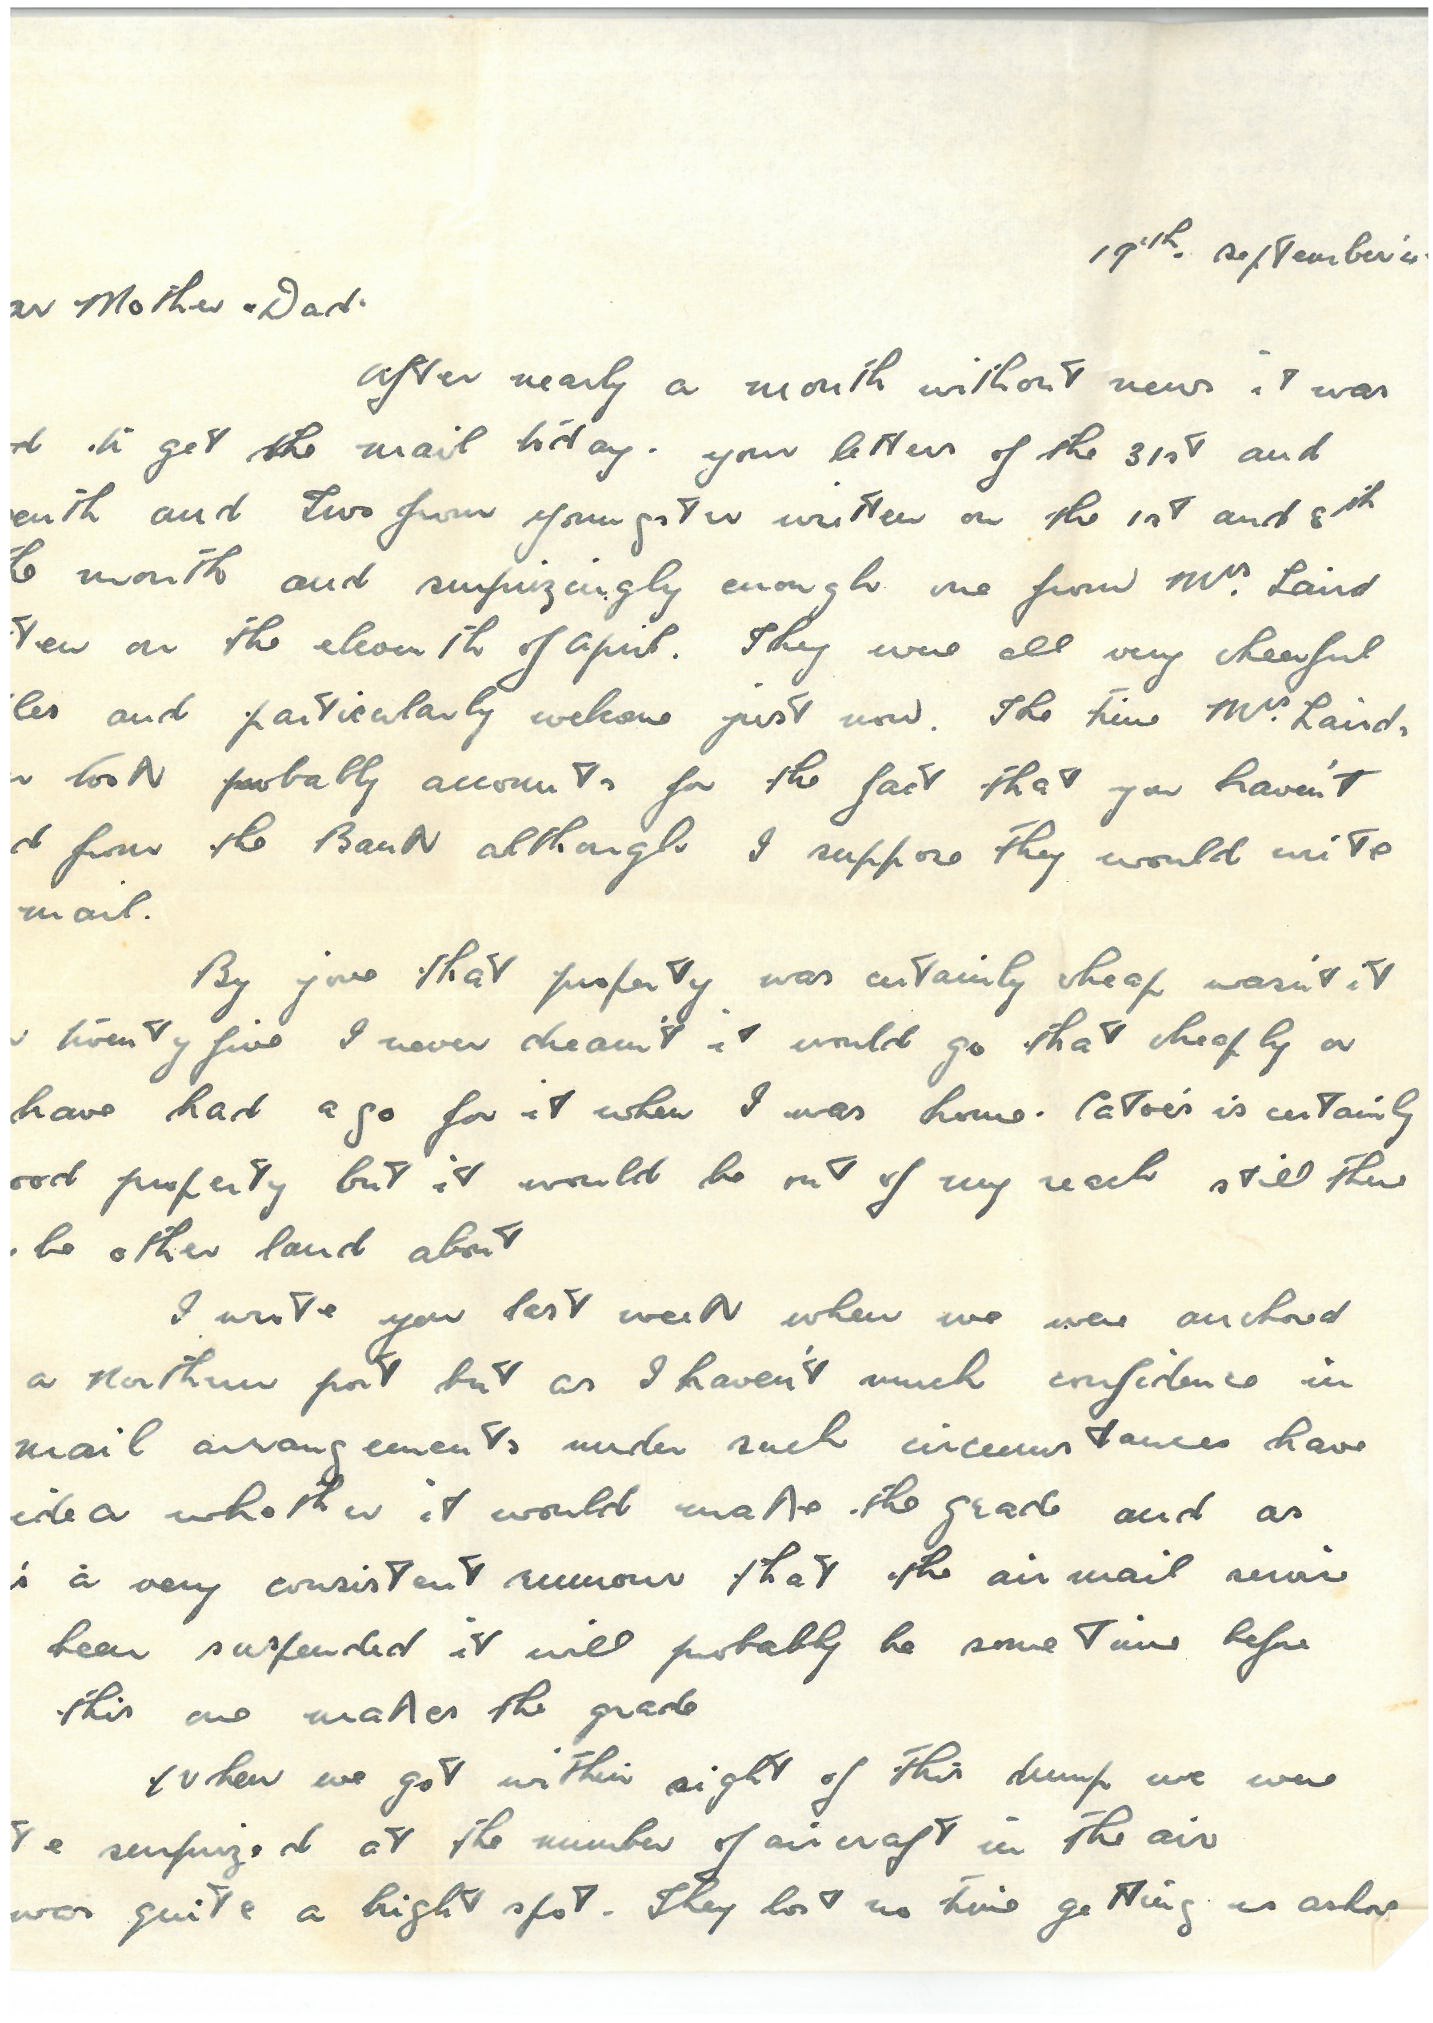 19th. September
Mother & Dad.
After nearly a month without news it was
to get the mail today. your letters of the 31st and
enth and two from youngster written on the 1st and 8th
month and surprizingly enough one from Mrs. Laird
ten on the eleventh of April. They were all very cheerful
les and particularly welcome just now. The time Mrs. Lairds
took probably accounts for the fact that you haven't
d from the Bank although I suppose they would write
mail.
By jove that property was certainly cheap wasn't it
twenty five I never dreamt it would go that cheaply or
have had a go for it when I was home. is certainly
ood property but it would be out of my reach still there
be other land about
I wrote you last week when we were anchored
a Northern port but as I haven't much confidence in
mail arrangements under such circumstances have
idea whether it would make the grade and as
s a very consistent rumour that the air mail service
been suspended it will probably be some time before
this one makes the grade
When we got within sight of this dump we were
te surprized at the number of aircraft in the air
was quite a bright spot. They lost no time getting us ashore